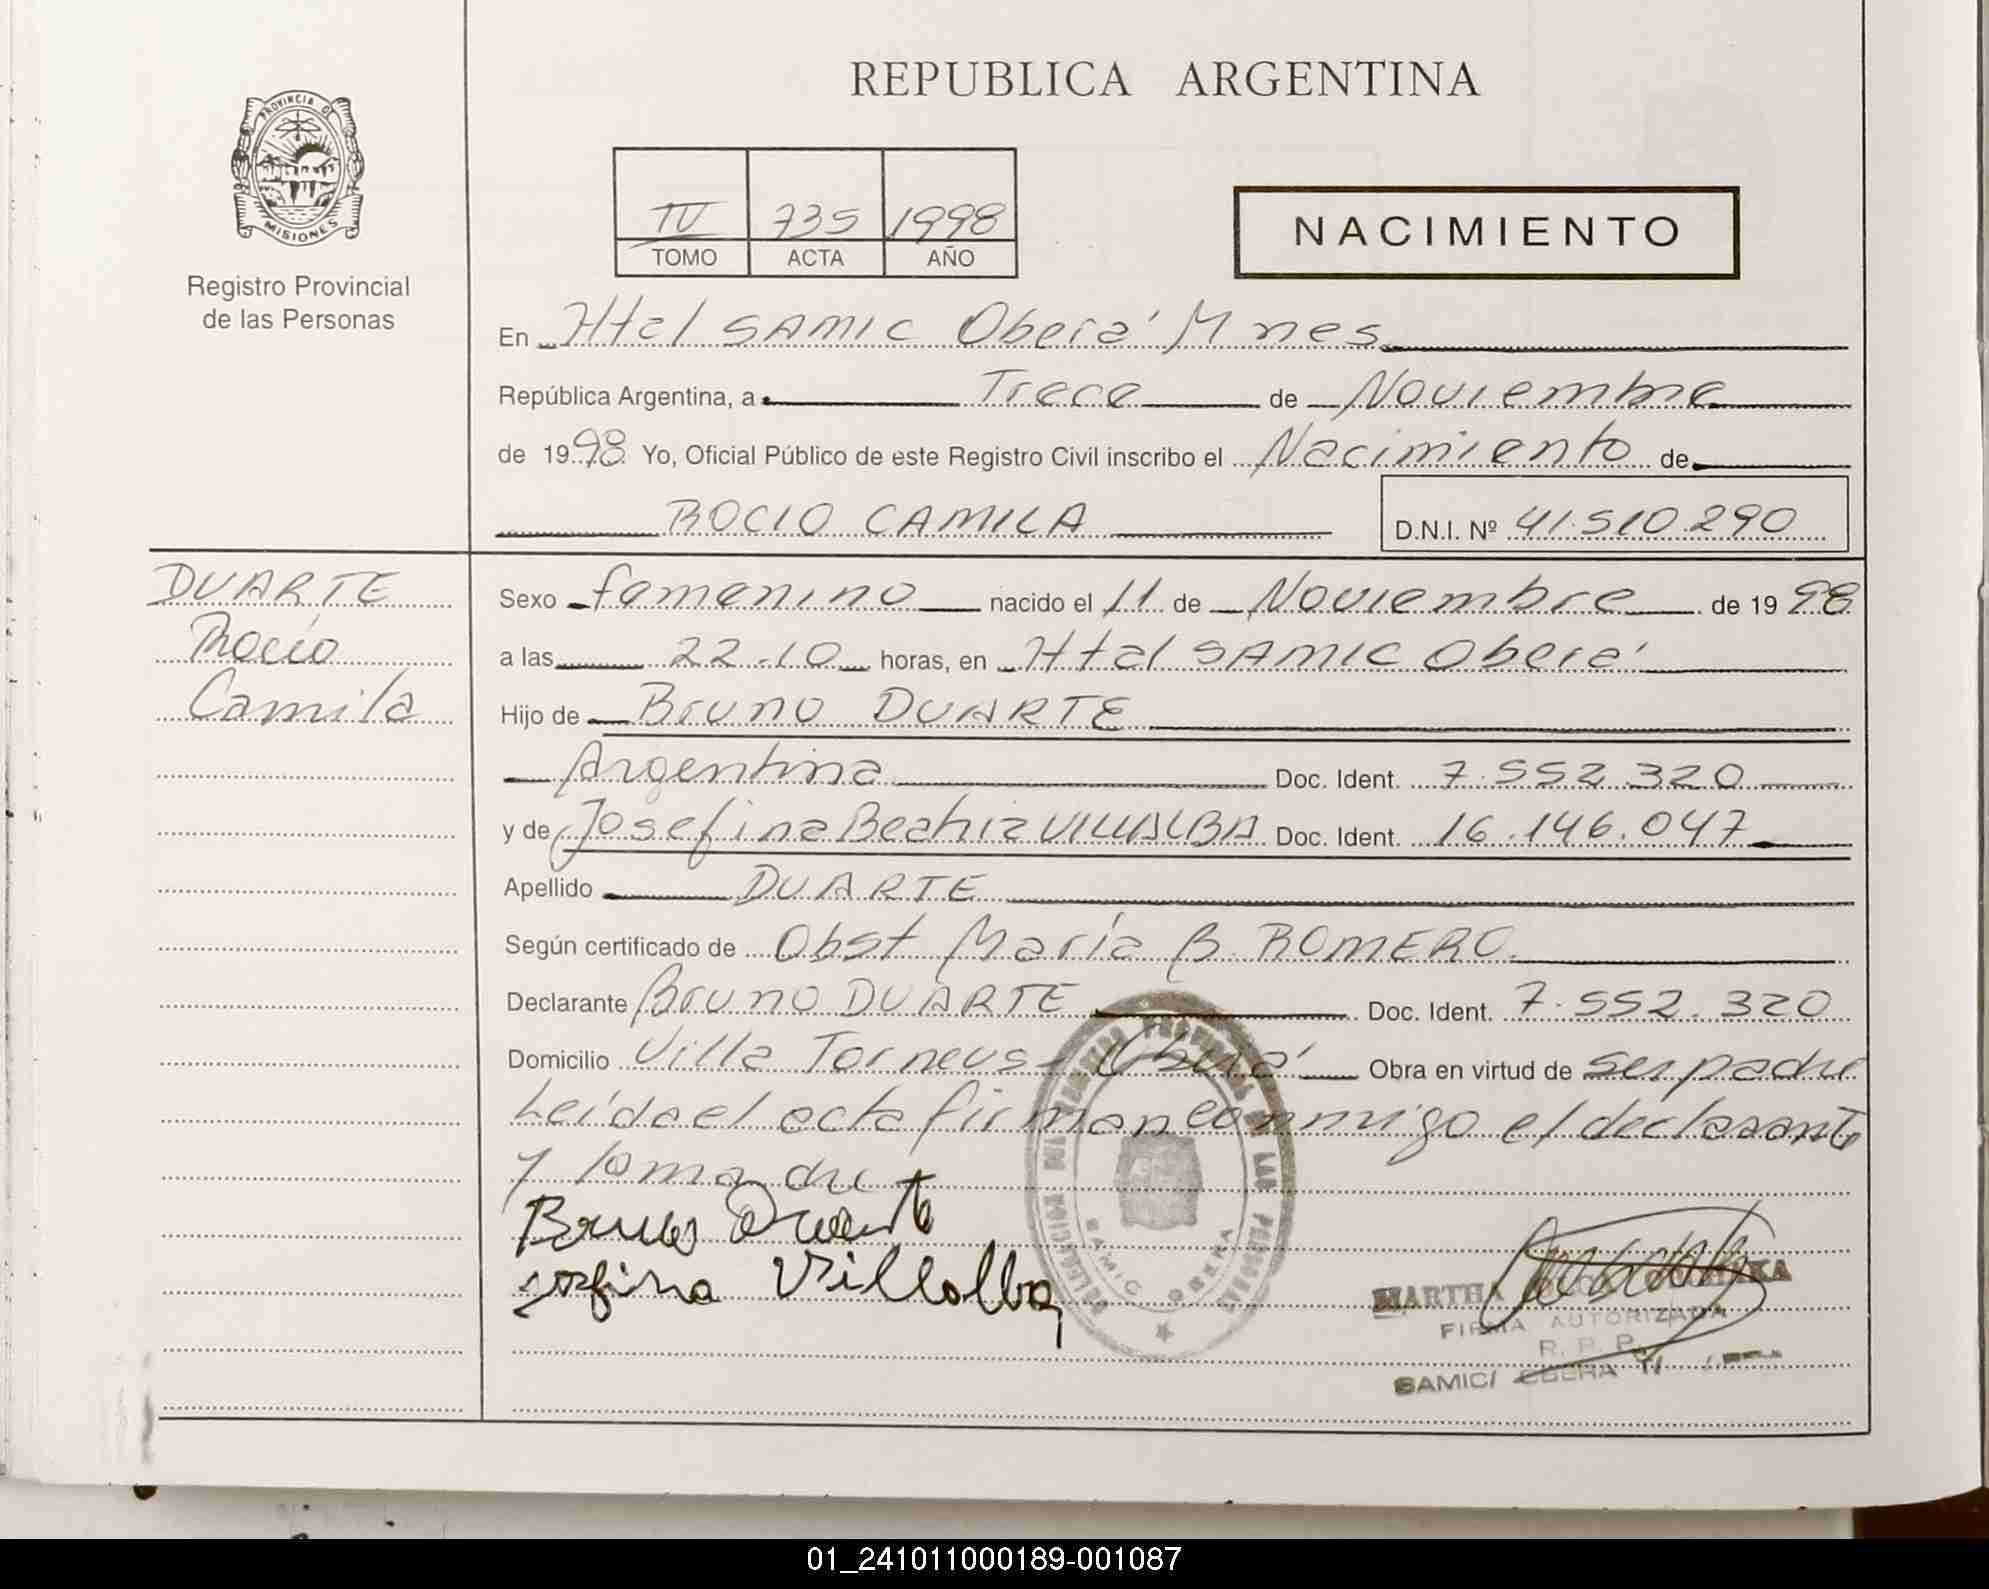 REPUBLICA ARGENTINA
PROVINCIA D
MISIONES
Registro Provincial
de las Personas
IV 735 1998
TOMO ACTA AÑO
NACIMIENTO
En Htal SAMIC Oberá Mnes
República Argentina, a Trece de Noviembre
de 1998 Yo, Oficial Público de este Registro Civil inscribo el Nacimiento de
ROCIO CAMILA D.N.I. Nº 41.510.290
DUARTE
Rocío
Camila
Sexo femenino nacido el 11 de Noviembre de 1998
a las 22.10 horas, en Htal SAMIC Oberá
Hijo de Bruno DUARTE
Argentina Doc. Ident. 7.552.320
y de Josefina Beatriz VILLALBA Doc. Ident. 16.146.047
Apellido DUARTE
Según certificado de Obst María B. ROMERO.
Declarante Bruno DUARTE Doc. Ident. 7.552.320
Domicilio Villa Torneus - Oberá Obra en virtud de ser padre
Leida el acta firman conmigo el declarante
y la madre
Bruno Duarte
Josfina Villalba
DELEGACION PROVINCIAL DE LAS PERSONAS
SAMIC OBERA
MARTHA
FIRMA AUTORIZADA
R. P. P.
SAMIC/ OBERA
01_241011000189-001087